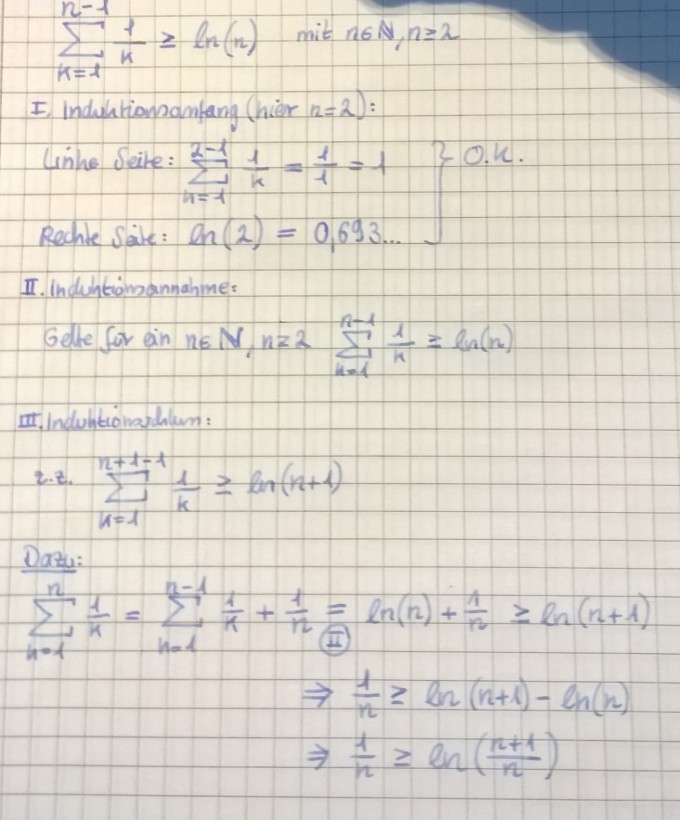 n-1
∑ 1/k ≥ ln(n) mit n∈ℕ, n≥2
k=1
I. Induktionsanfang (hier n=2):
Linke Seite: ∑_{k=1}^{2-1} 1/k = 1/1 = 1 } O.K.
Rechte Seite: ln(2) = 0,693...
II. Induktionsannahme:
Gelte für ein n∈ℕ, n≥2 ∑_{k=1}^{n-1} 1/k ≥ ln(n)
III. Induktionsschluss:
z.z. ∑_{k=1}^{n+1-1} 1/k ≥ ln(n+1)
Dazu:
∑_{k=1}^{n} 1/k = ∑_{k=1}^{n-1} 1/k + 1/n =_{(II)} ln(n) + 1/n ≥ ln(n+1)
⇒ 1/n ≥ ln(n+1) - ln(n)
⇒ 1/n ≥ ln((n+1)/n)